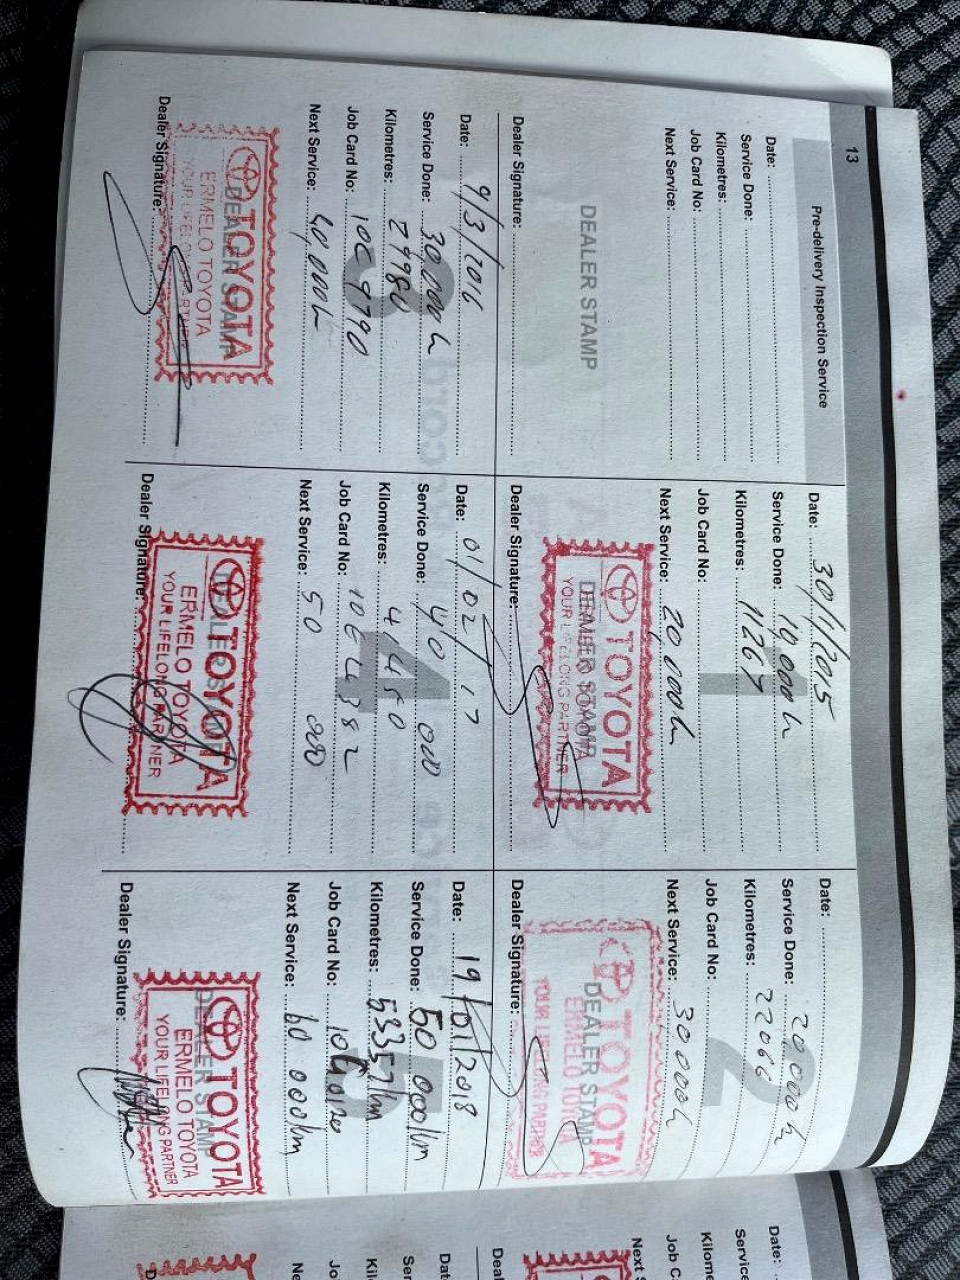 13
Pre-delivery Inspection Service
Date:
Service Done:
Kilometres:
Job Card No:
Next Service:
DEALER STAMP
Dealer Signature:
Date: 30/1/2015
Service Done: 10 000
Kilometres: 11267
Job Card No:
Next Service: 20 000
1
TOYOTA
DEALER STAMP
ERMELO TOYOTA
YOUR LIFELONG PARTNER
Dealer Signature:
Date:
Service Done: 20 000
Kilometres: 22060
Job Card No:
Next Service: 30 000
2
TOYOTA
DEALER STAMP
ERMELO TOYOTA
YOUR LIFELONG PARTNER
Dealer Signature:
Date: 9/3/2016
Service Done: 30 000
Kilometres: 29984
Job Card No: 10C 9790
Next Service: 40,000
3
TOYOTA
DEALER STAMP
ERMELO TOYOTA
YOUR LIFELONG PARTNER
Dealer Signature:
Date: 01/02/17
Service Done: 40 000
Kilometres: 44450
Job Card No:
Next Service: 50 000
4
TOYOTA
DEALER STAMP
ERMELO TOYOTA
YOUR LIFELONG PARTNER
Dealer Signature:
Date: 19/01/2018
Service Done: 50 000km
Kilometres: 53357km
Job Card No:
Next Service: 60 000km
5
TOYOTA
DEALER STAMP
ERMELO TOYOTA
YOUR LIFELONG PARTNER
Dealer Signature:
Date:
Service
Kilome
Job C
Next S
Date:
Se
Kil
Jo
Ne